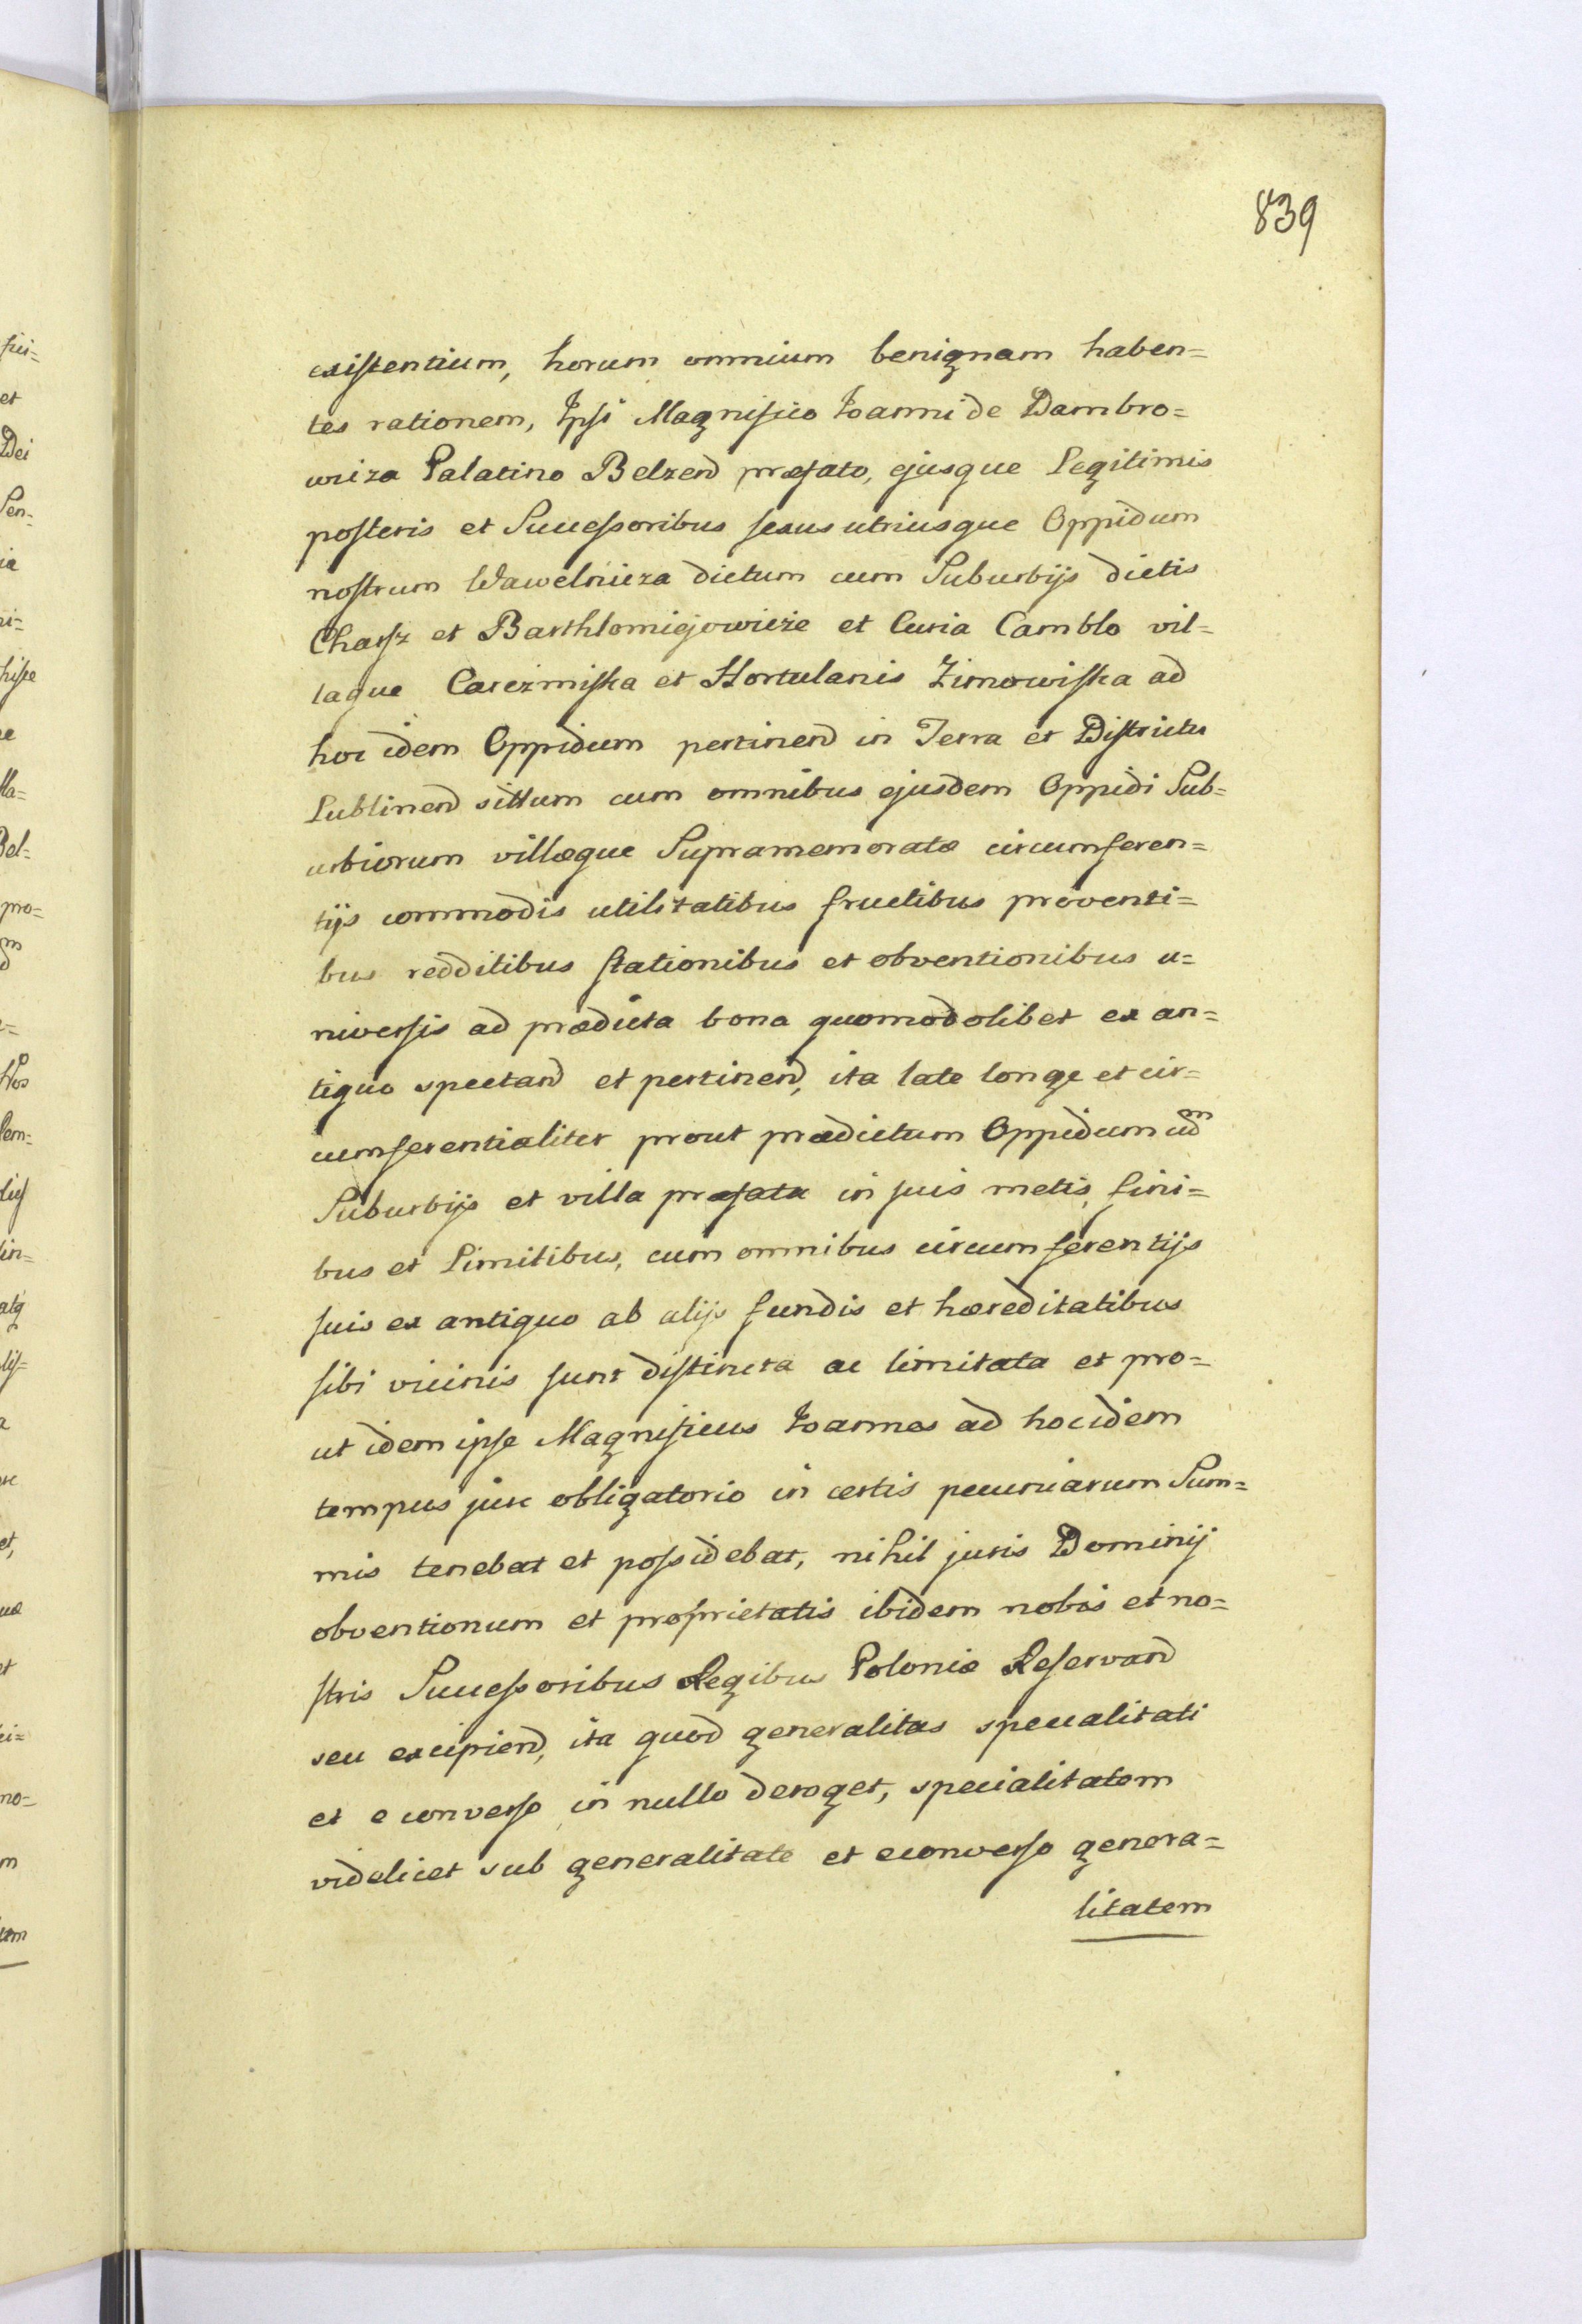 839
existentium, horum omnium benignam haben=
tes rationem, Ipsi Magnifico Joanni de Dambro=
wiza Palatino Belzend præfato, ejusque Legitimis
posteris et Successoribus sexus utriusque Oppidum
nostrum Wawelnicza dictum cum Suburbijs dictis
Chassz et Barthlomiejowicze et Curia Camblo vil=
laque Carczmiska et Hortulanis Zimowiska ad
hoc idem Oppidum pertinend in Terra et Districtu
Lublinend sittum cum omnibus ejusdem Oppidi Sub=
urbiorum villæque Supramemoratæ circumferen=
tijs commodis utilitatibus fructibus proventi=
bus redditibus stationibus et obventionibus u=
niversis ad prædicta bona quomodolibet ex an=
tiquo spectand et pertinend, ita late longe et cir=
cumferentialiter prout prædictum Oppidum cum
Suburbijs et villa præfata in suis metis, fini=
bus et Limitibus, cum omnibus circumferentijs
suis ex antiquo ab alijs fundis et hæreditatibus
sibi vicinis sunt distincta ac limitata et pro=
ut idem ipse Magnificus Joannes ad hocidem
tempus jure obligatorio in certis pecuniarum Sum=
mis tenebat et possidebat, nihil juris Dominij
obventionum et proprietatis ibidem nobis et no=
stris Successoribus Regibus Poloniæ Reservand
seu excipiend, ita quod generalitas specialitati
et e converso in nullo deroget, specialitatem
videlicet sub generalitate et econverso genera=
litatem